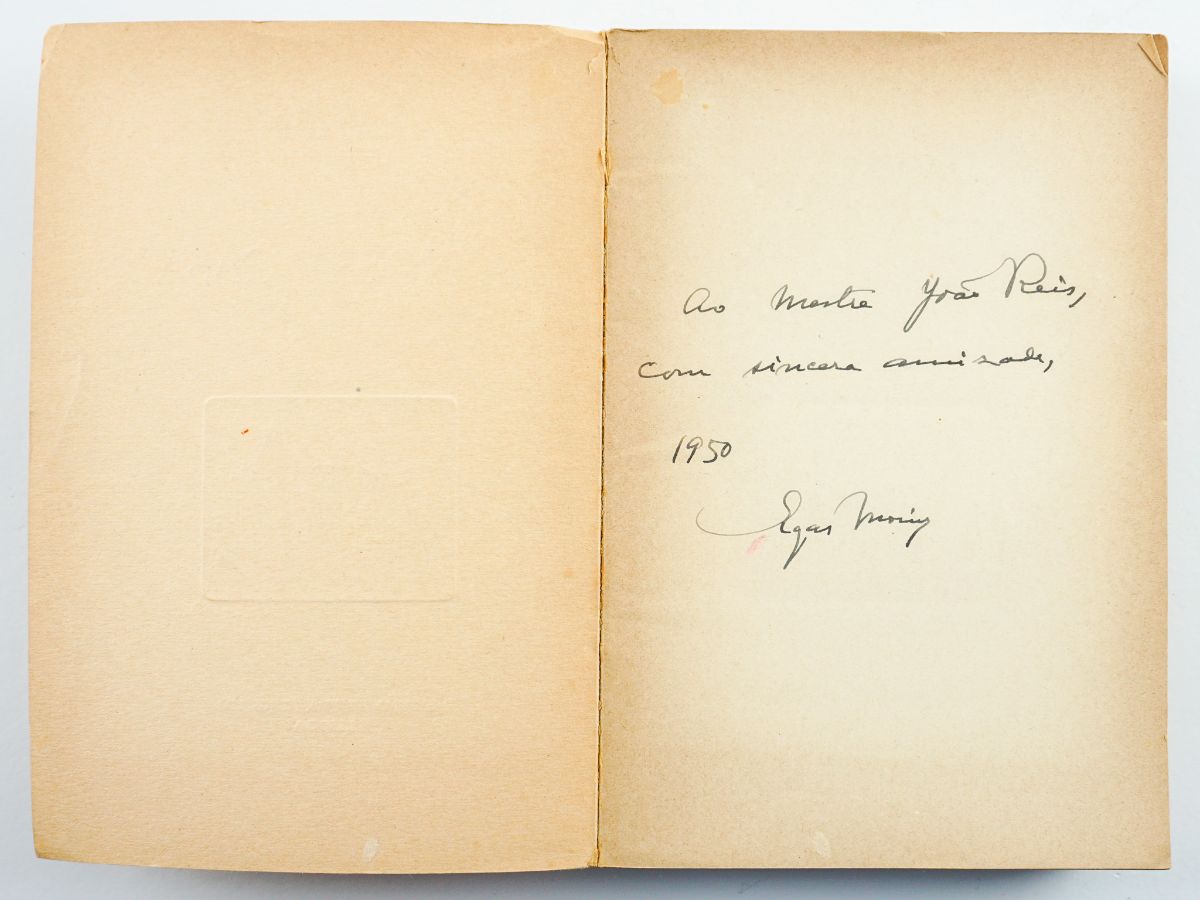 Ao Mestre João Reis,
com sincera amizade,
1950
Egas Moniz